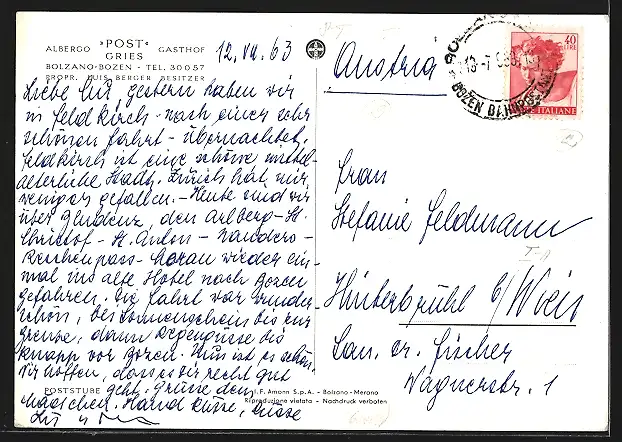 ALBERGO »POST« GASTHOF
GRIES
BOLZANO-BOZEN - TEL. 30057
PROPR. LUIS BERGER BESITZER
12. VII. 63
Liebe gestern haben wir
in Feldkirch - nach einer sehr
schönen Fahrt - übernachtet.
Feldkirch ist eine schöne mittel-
alterliche Stadt. Zürich hat mir
weniger gefallen. - Heute sind wir
über Bludenz, den Arlberg - St.
Christof - St. Anton - Nauders -
Reschenpass - Meran wieder ein-
mal ins alte Hotel nach Bozen
gefahren. Die Fahrt war wunder-
schön, bei Sonnenschein bis zur
Grenze, dann Regengüsse bis
knapp vor Bozen. Nun ist es schön.
Wir hoffen, dass es dir recht gut
geht. Grüsse den
Mädchen. Handküsse, Küsse
POSTSTUBE
I.F. Amonn S.p.A. - Bolzano - Merano
Riproduzione vietata - Nachdruck verboten
Austria
40
LIRE
ITALIANE
BOZEN BAHNPOST
Frau
Stefanie Feldmann
Hinterbrühl b/Wien
San. Dr. Fischer
Wagnerstr. 1